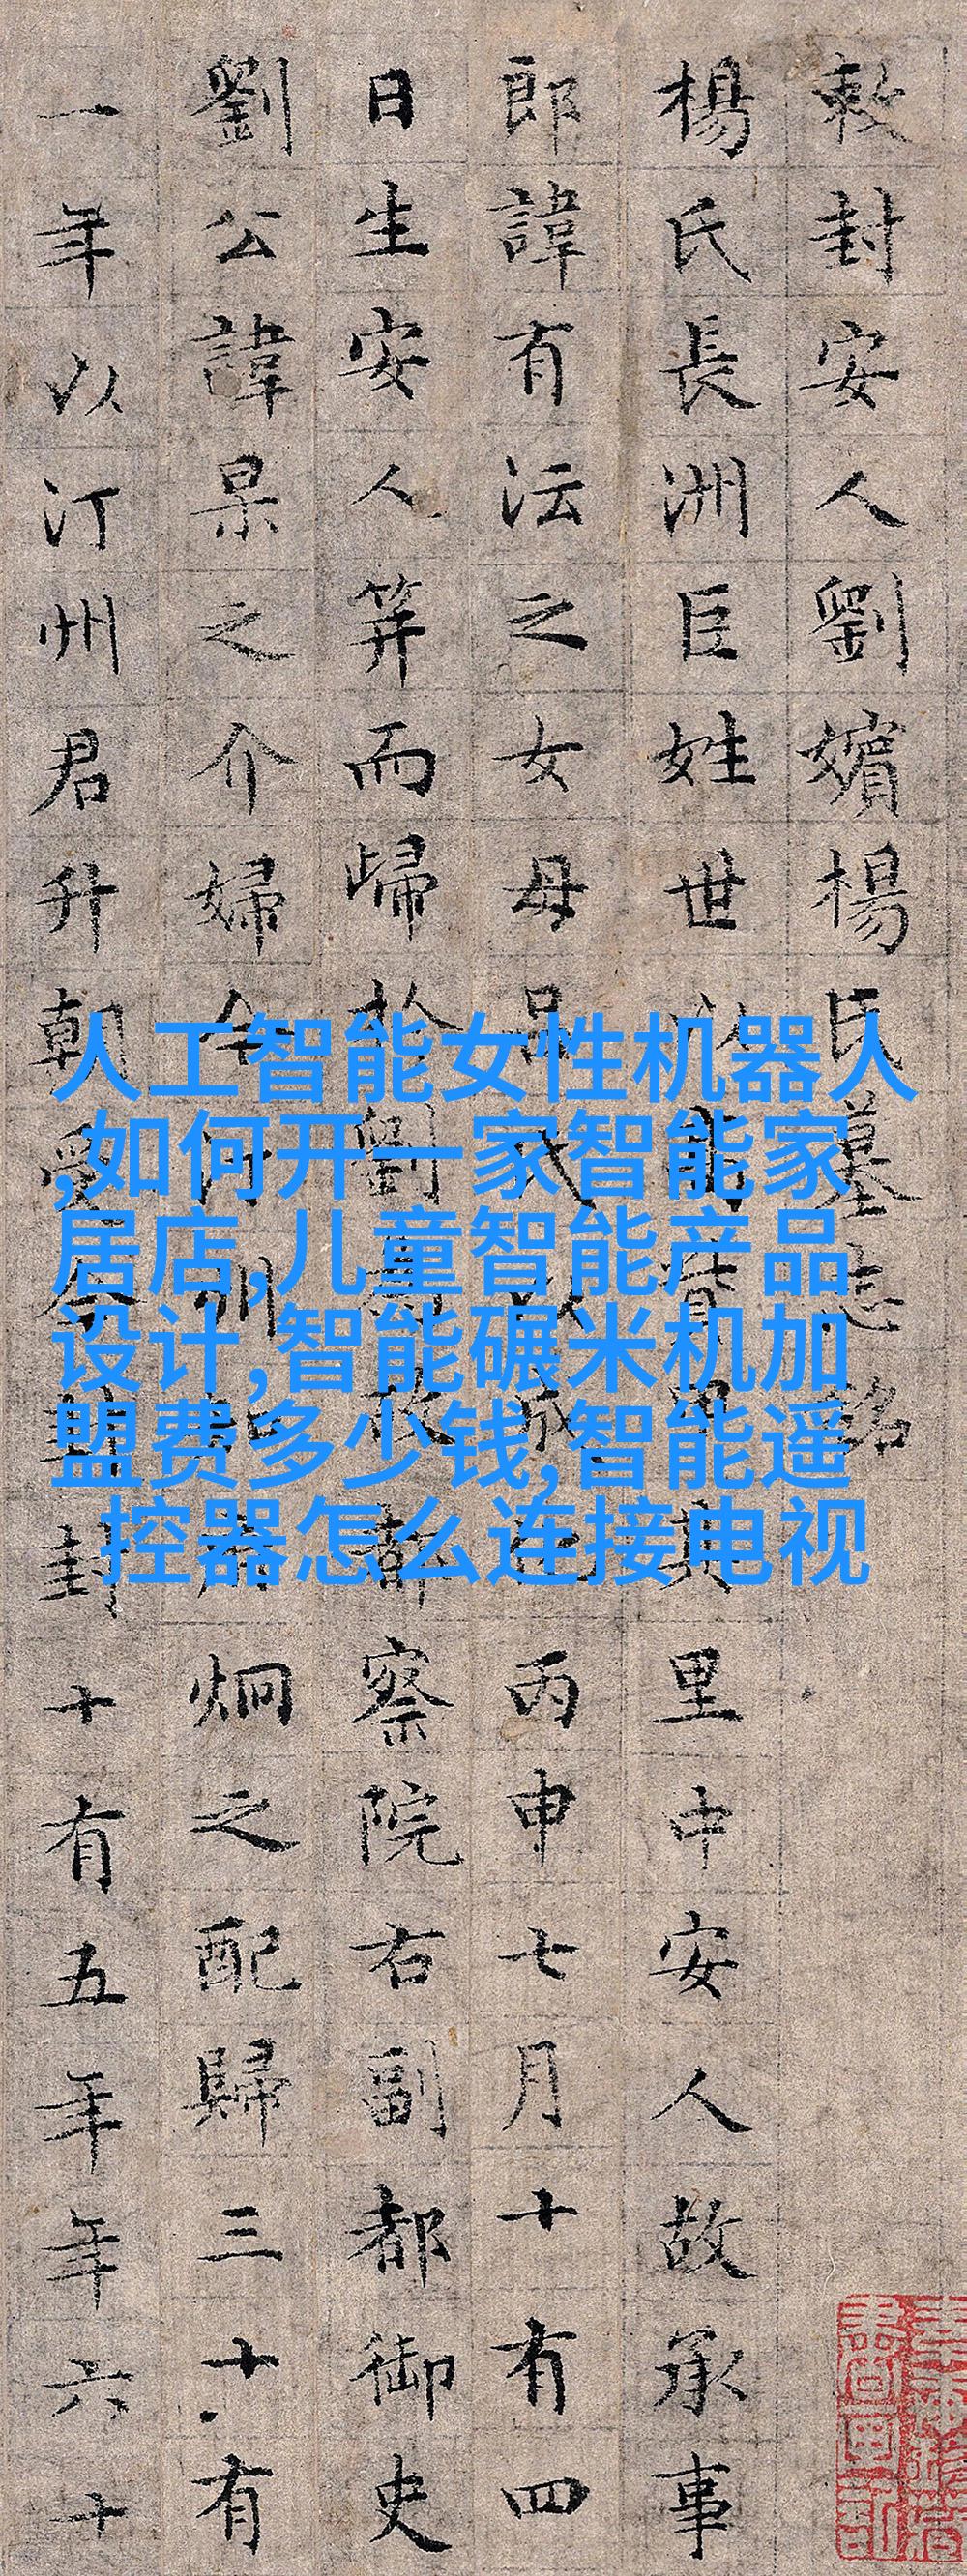 敕封安人劉嬪楊氏墓志銘
楊氏長洲巨姓世以貲甲其里中安人故承事
郎諱有沄之女母吕氏以成化丙申七月十有四
日生安人筭而歸於劉爲故都察院右副都御史
劉公諱杲之介婦今汀州炯之配歸三十有
一年以汀州君升朝受今封封十有五年年六十
人工智能女性机器人
,如何开一家智能家
居店,儿童智能产品
设计,智能碾米机加
盟费多少钱,智能遥
控器怎么连接电视